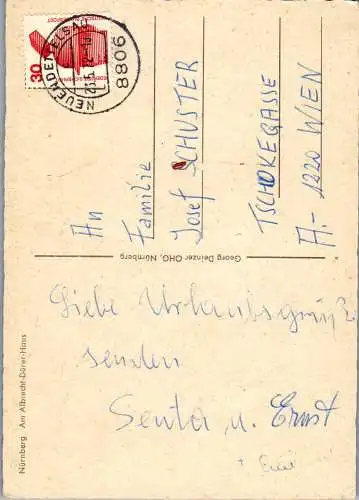 Nürnberg  Am Albrecht-Dürer-Haus
Liebe Urlaubsgrüße
senden
Senta u. Ernst
Georg Deinzer OHG, Nürnberg
30
DEUTSCHE BUNDESPOST
8806
NEUENDETTELSAU
An
Familie
Josef SCHUSTER
TSCHOKEGASSE
A.- 1220 WIEN